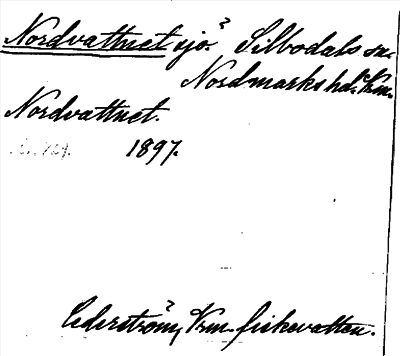 Nordvattnet sjö? Silbodals sn.
Nordmarks hd. Vrm.
Nordvattnet.
1897.
Cederström, Vrm. fiskevatten.